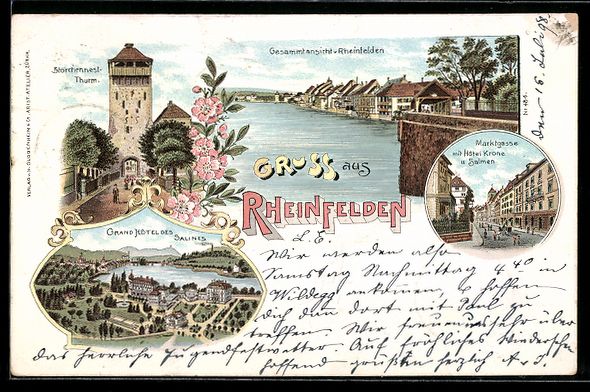 Storchennest-
Thurm.
Gesammtansicht v. Rheinfelden
den 16. Juli 98.
VERLAG v. H. GUGGENHEIM & Co. ARTIST. ATELIER ZÜRICH.
No 484.
Gruss aus
Rheinfelden
Marktgasse
mit Hôtel Krone
u. Salmen
Grand Hôtel des
Salines
L. E.
Wir werden also
Samstag Nachmittag 4 40 in
Wildegg ankommen, & hoffen
dich dort mit
treffen. Wir freuen uns sehr über
das herrliche Jugendfestwetter. Auf fröhliches Wiedersehn
hoffend grüßen herzlich A. & J.